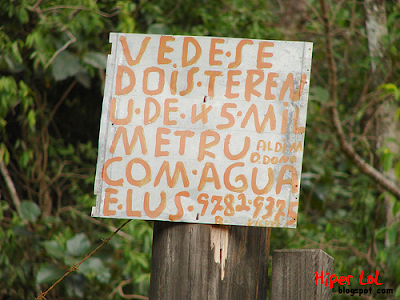 VEDE·SE
DOIS·TEREN
U·DE·45·MIL
METRU
COM·AGUA
E·LUS·9782·937
Hiper LoL
blogspot.com